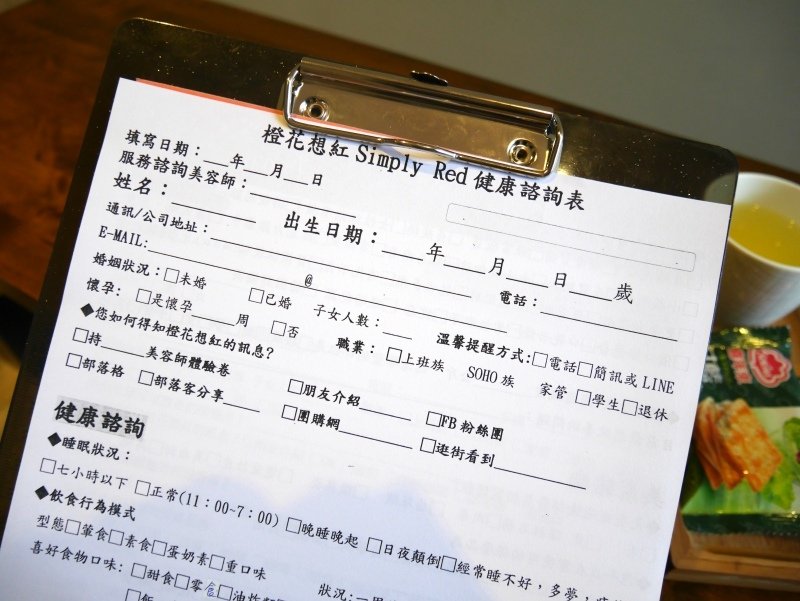 橙花想紅 Simply Red 健康諮詢表
填寫日期：___年___月___日
服務諮詢美容師：__________
姓名：________ 出生日期：____年____月____日____歲
通訊/公司地址：__________ 電話：__________
E-MAIL:__________@__________
婚姻狀況：□未婚 □已婚 子女人數：___ 溫馨提醒方式:□電話□簡訊或 LINE
懷孕: □是懷孕____周 □否 職業：□上班族 SOHO 族 家管 □學生□退休
◆您如何得知橙花想紅的訊息?
□持_____美容師體驗卷 □朋友介紹______ □FB 粉絲團
□部落格 □部落客分享____ □團購網________ □逛街看到__________
健康諮詢
◆睡眠狀況：
□七小時以下 □正常(11：00~7：00) □晚睡晚起 □日夜顛倒□經常睡不好，多夢，
◆飲食行為模式
型態□葷食□素食□蛋奶素□重口味
喜好食物口味: □甜食□零食□油炸 狀況:一周